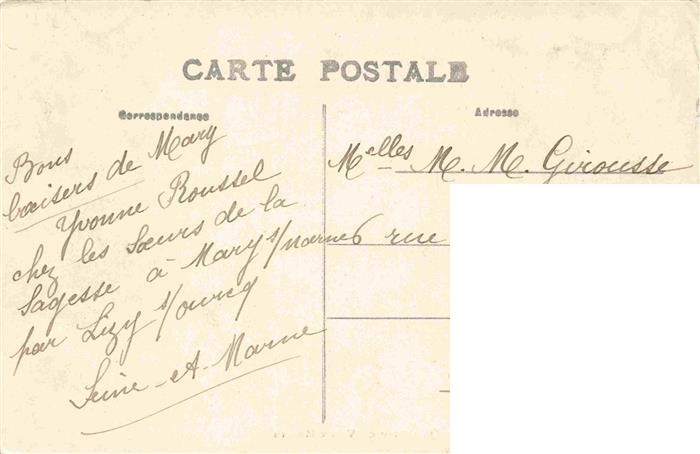 CARTE POSTALE
Correspondance
Adresse
Bons
baisers de Mary
Yvonne Roussel
chez les Sœurs de la
Sagesse à Mary s/marne
par Lizy s/ourcq
Seine-et-Marne
Melles M. M. Girousse
6 rue